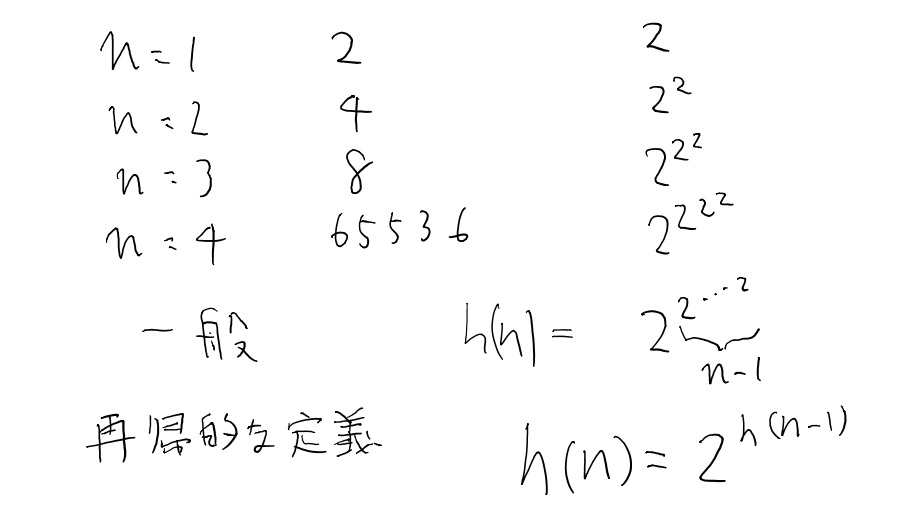 n=1 2 2
n=2 4 2^2
n=3 8 2^{2^2}
n=4 65536 2^{2^{2^2}}
一般 h(n)= 2^{2^{⋯^2}} n-1
再帰的な定義 h(n)=2^{h(n-1)}